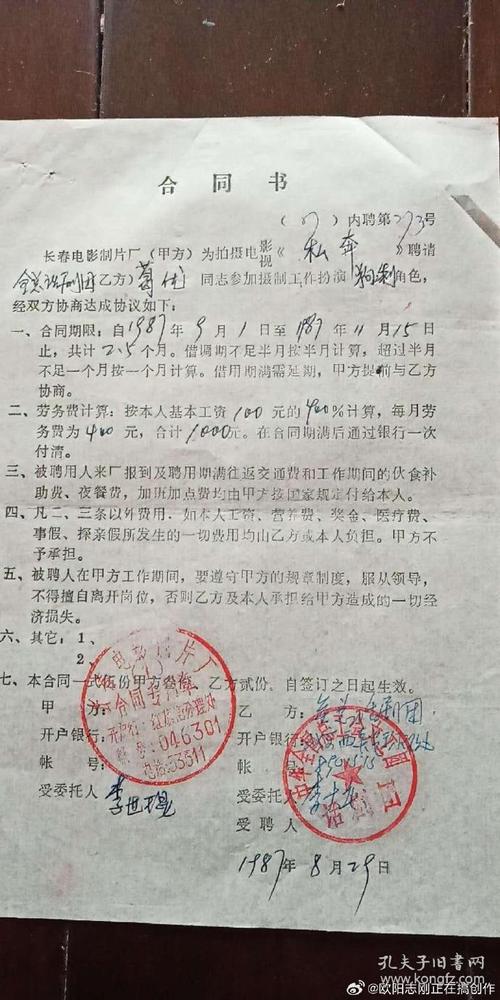 合同书
(87)内聘第273号
长春电影制片厂（甲方）为拍摄电影视《私奔》聘请
全总话剧团乙方）葛优同志参加摄制工作扮演角色，
经双方协商达成协议如下：
一、合同期限：自1987年9月1日至1987年11月15日
止，共计2.5个月。借调期不足半月按半月计算，超过半月
不足一个月按一个月计算。借用期满需延期，甲方提前与乙方
协商。
二、劳务费计算：按本人基本工资100元的400%计算，每月劳
务费为400元，合计1000元。在合同期满后通过银行一次
付清。
三、被聘用人来厂报到及聘用期满往返交通费和工作期间的伙食补
助费、夜餐费，加班加点费均由甲方按国家规定付给本人。
四、凡二、三条以外费用．如本人工资、营养费、奖金、医疗费、
事假、探亲假所发生的一切费用均由乙方或本人负担。甲方不
予承担。
五、被聘人在甲方工作期间，要遵守甲方的规章制度，服从领导，
不得擅自离开岗位，否则乙方及本人承担给甲方造成的一切经
济损失。
六、其它：1、
2、
七、本合同一式伍份甲方叁份，乙方贰份，自签订之日起生效。
甲方：
乙方：
开户银行：
开户银行：
帐号：
帐号：
受委托人
受委托人
受聘人
电影制片厂
合同专用章
046301
电话：53511
话剧团
1987年8月29日
孔夫子旧书网
kongfz.com
@欧阳志刚正在搞创作